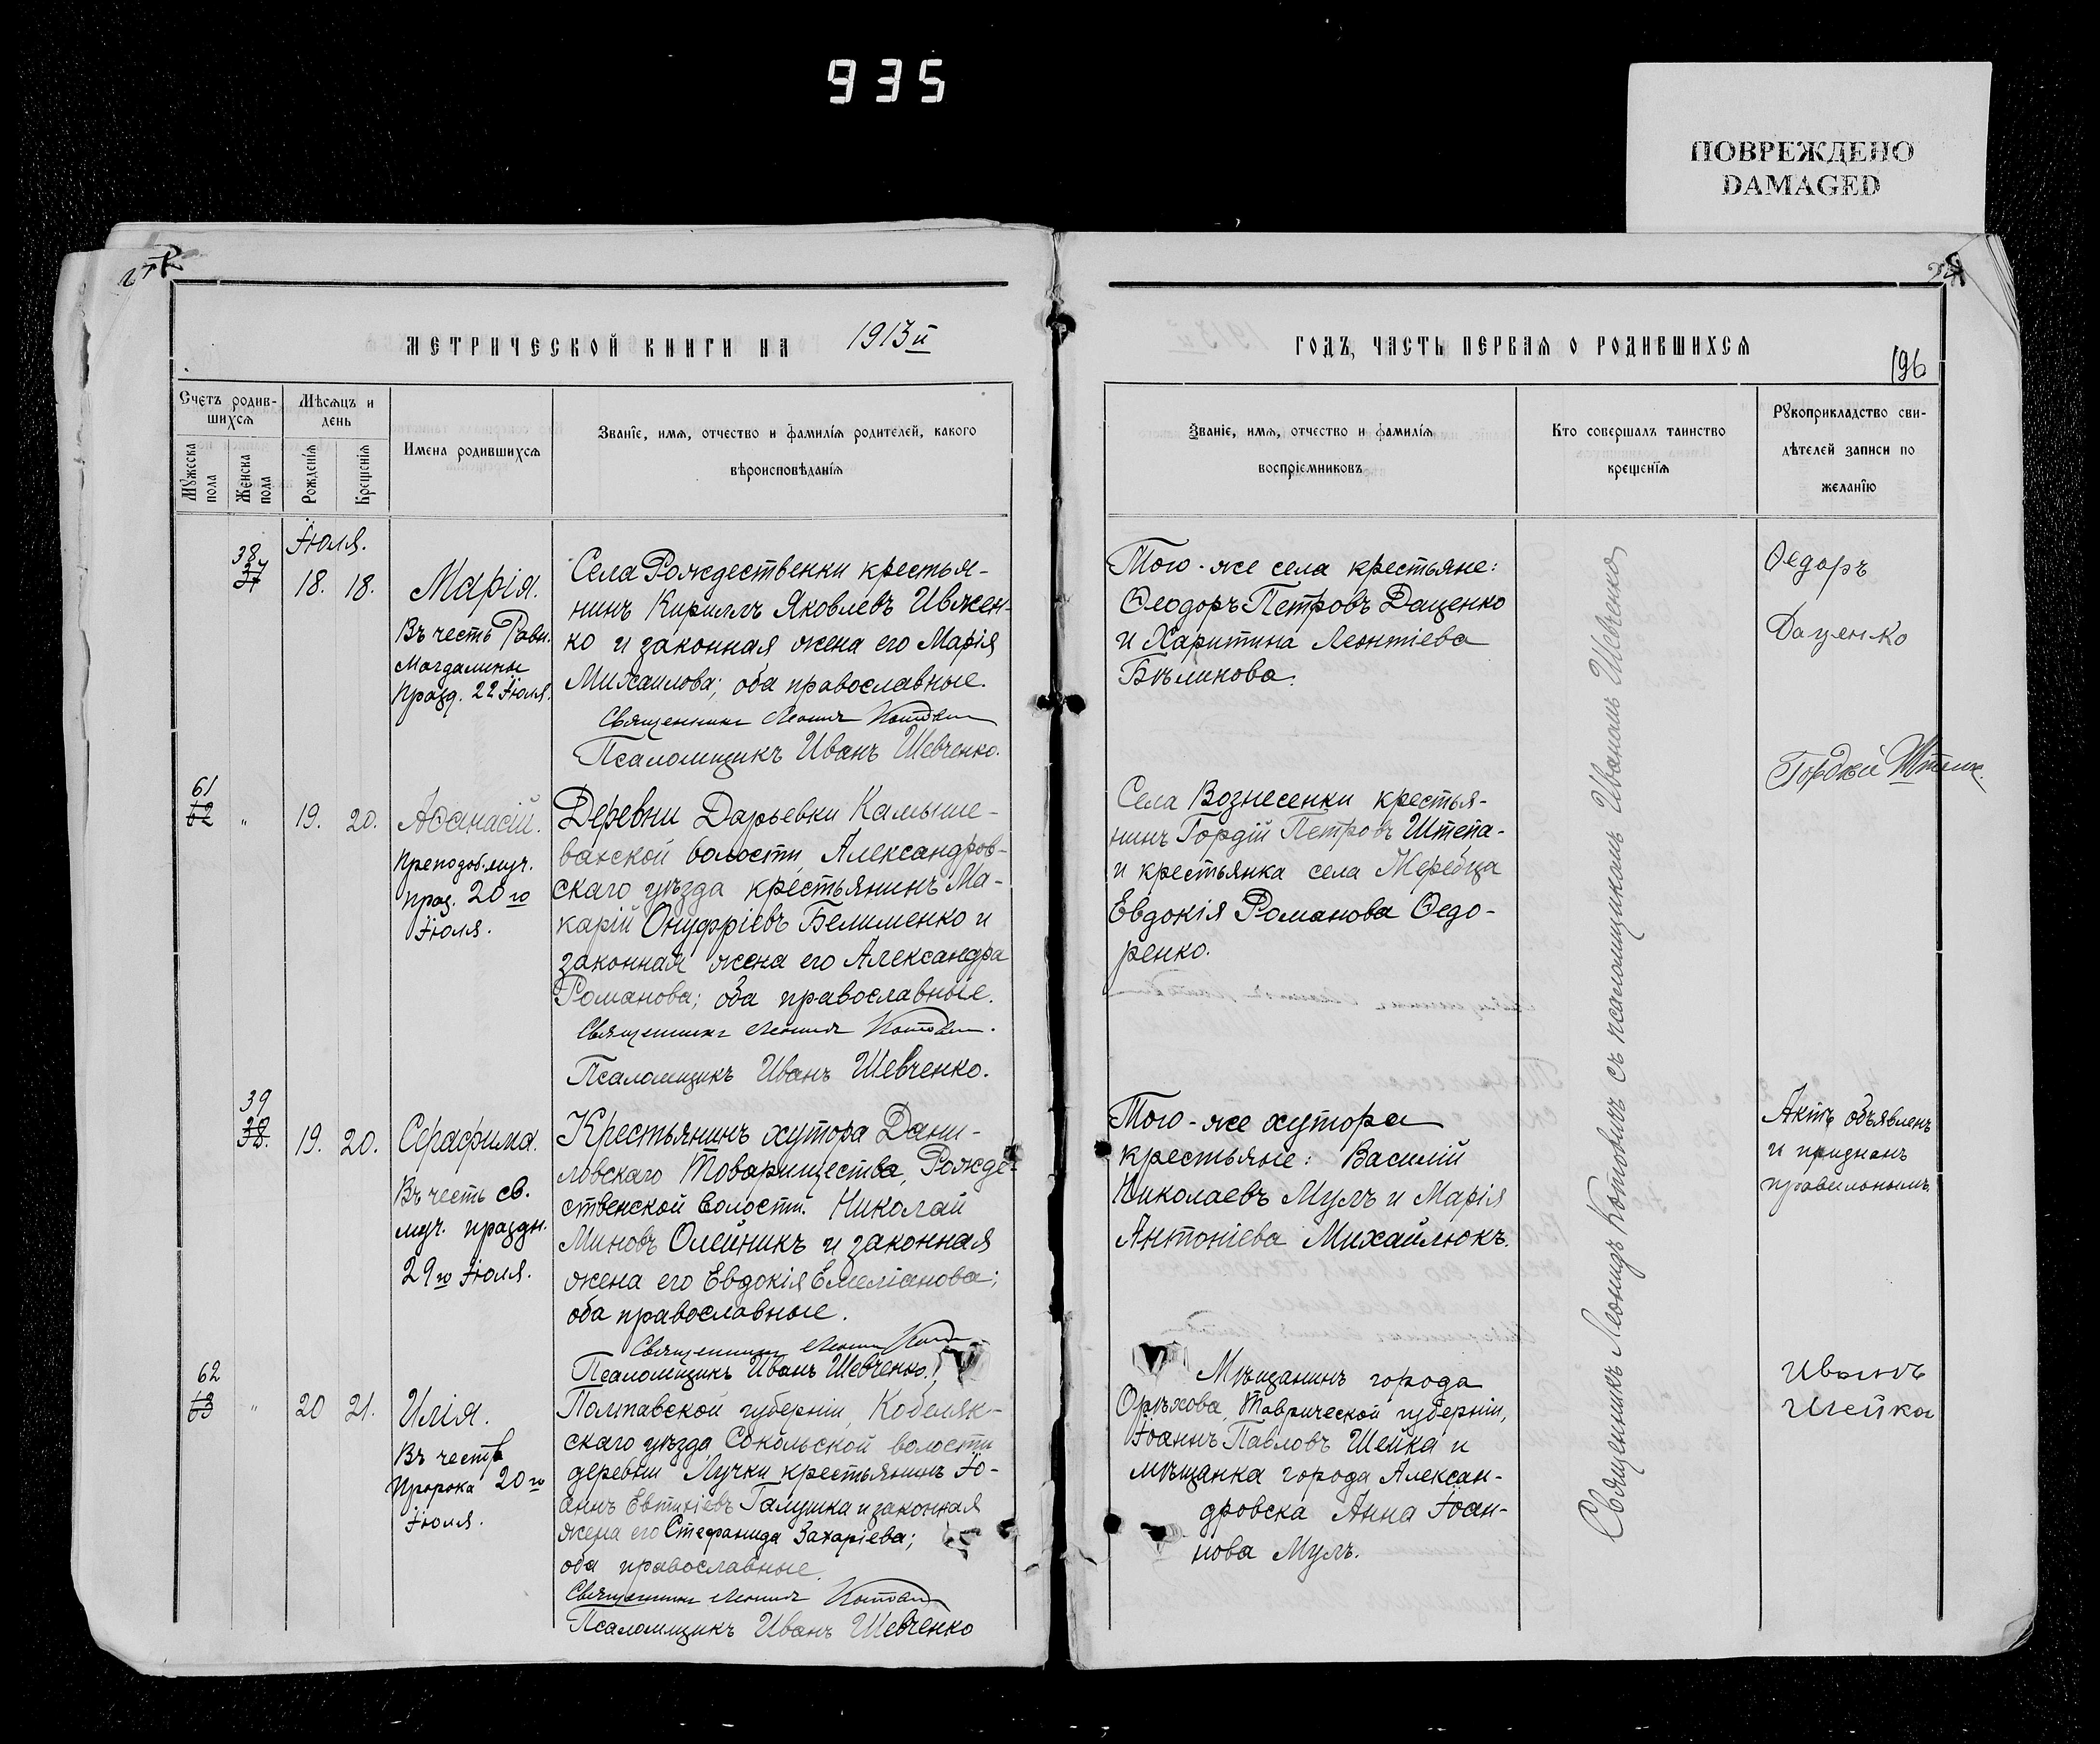 935
ПОВРЕЖДЕНО
DAMAGED
МЕТРИЧЕСКОЙ КНИГИ НА 1913й
Счетъ родив-
шихся
Мѣсяцъ и
день
Мужеска
пола
Женска
пола
Рожденія
Крещенія
Имена родившихся
Званіе, имя, отчество и фамилія родителей, какого
вѣроисповѣданія
Іюля.
38
37
18. 18.
Марія.
Въ честь Равн.
Магдалины
Празд. 22 Іюля.
Села Рождественки крестья-
нинъ Кириллъ Яковлевъ Ивжен-
ко и законная жена его Марія
Михаилова; оба православные.
Священникъ Леонидъ Котович
Псаломщикъ Иванъ Шевченко.
61
62 "
19. 20.
Аѳанасій.
Преподоб. муч.
праз. 20го
Іюля.
Деревни Дарьевки Камыше-
вахской волости, Александров-
скаго уѣзда крестьянинъ Ма-
карій Онуфріевъ Белименко и
законная жена его Александра
Романова; оба православные.
Священникъ Леонидъ Котович.
Псаломщикъ Иванъ Шевченко.
39
38.
19. 20.
Серафима.
Въ честь св.
муч. праздн.
29го Іюля.
Крестьянинъ хутора Дани-
ловскаго Товарищества, Рожде-
ственской волости. Николай
Миновъ Олейникъ и законная
жена его Евдокія Емеліанова;
оба православные.
Священникъ Леонидъ
Псаломщикъ Иванъ Шевченко.
62
63 "
20 21.
Илія.
Въ честь
Пророка 20го
Іюля.
Полтавской губерніи, Кобеляк-
скаго уѣзда Сокольской волости
деревни Лучки крестьянинъ Іо-
аннъ Евтихіевъ Галушка и законная
жена его Стефанида Захаріева;
оба православные.
Священникъ Леонидъ Котович
Псаломщикъ Иванъ Шевченко
ГОДЪ, ЧАСТЬ ПЕРВАЯ О РОДИВШИХСЯ
196
Званіе, имя, отчество и фамилія
воспріемниковъ
Кто совершалъ таинство
крещенія
Рукоприкладство сви-
дѣтелей записи по
желанію
Того-же села крестьяне:
Ѳеодоръ Петровъ Даценко
и Харитина Леонтіева
Бѣликова.
Ѳедоръ
Даценко
Села Вознесенки крестья-
нинъ Гордій Петровъ Штепа-
и крестьянка села Жеребца
Евдокія Романова Ѳедо-
ренко.
Гордѣй
Того-же хутора
крестьяне: Василій
Николаевъ Мулъ и Марія
Антоніева Михайлюкъ.
Актъ объявленъ
и признанъ
правильнымъ.
Мѣщанинъ города
Орѣхова, Таврической губерніи,
Іоаннъ Павловъ Шейка и
мѣщанка города Алексан-
дровска Анна Іоан-
нова Мулъ.
Иванъ
Шейка
Священникъ Леонидъ Котовичъ съ псаломщикомъ Иваномъ Шевченко